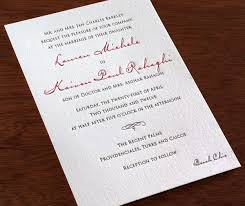 Mr. and Mrs. Ian Charles Barkley
request the pleasure of your company
at the marriage of their daughter
Lauren Michele
to
Kaivon Paul
son of Doctor and Mrs. Ashkar
Saturday, the twenty-first of April
two thousand twelve
at in the afternoon
The Regent Palms
Providenciales, Turks and Caicos
Reception to follow
Beach Chic